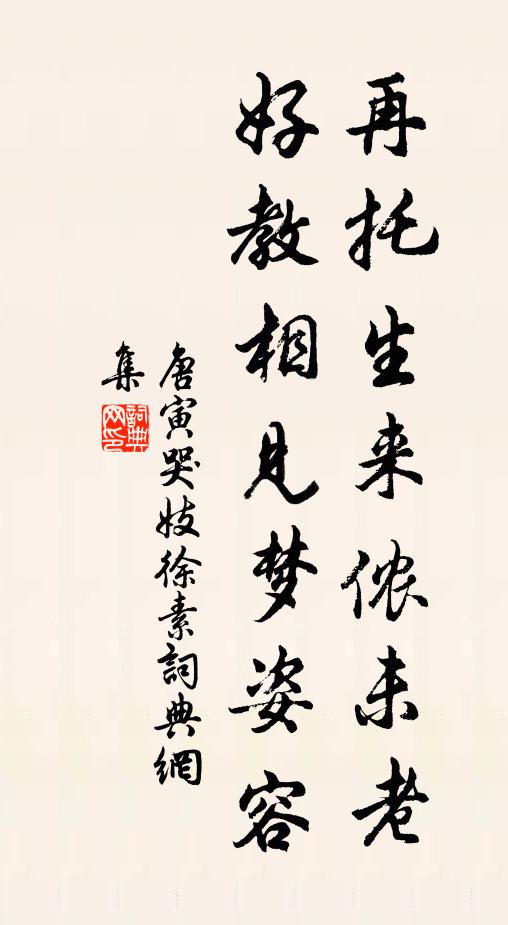 再托生来侬未老
好教相见梦姿容
唐寅哭妓徐素詞典網
集
詞典網印